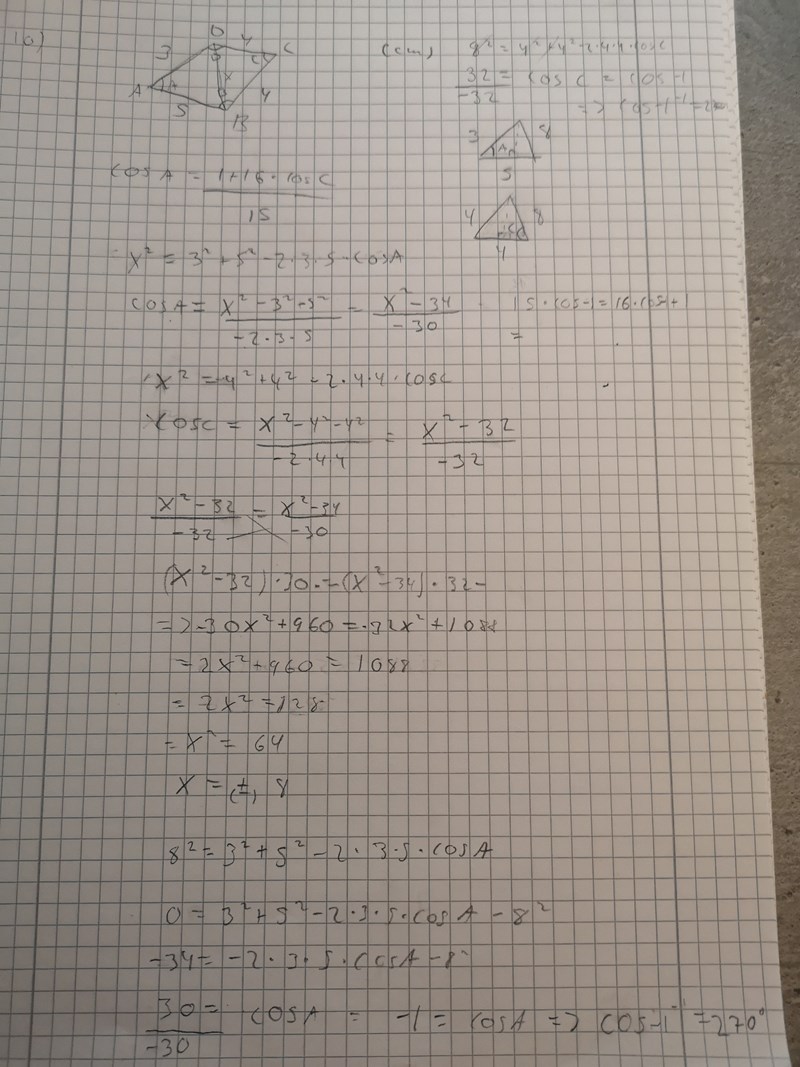 10)
D 4 C
3
x
A A
5
4
B
(cm) 8² = 4² + 4² - 2·4·4·cos C
32/-32 = cos C = cos -1
=> cos -1⁻¹ =
3 8
A
5
4 8
4
cos A = (1+16·cos C)/15
x² = 3² + 5² - 2·3·5·cos A
cos A = (x² - 3² - 5²)/(-2·3·5) = (x² - 34)/(-30)
15·cos -1 = 16·cos +1
=
x² = 4² + 4² - 2·4·4·cos C
cos C = (x² - 4² - 4²)/(-2·4·4) = (x² - 32)/(-32)
(x² - 32)/(-32) = (x² - 34)/(-30)
(x² - 32)·30·- = (x² - 34)·32-
=> -30x² + 960 = -32x² + 1088
= 2x² + 960 = 1088
= 2x² = 128
= x² = 64
x = (±) 8
8² = 3² + 5² - 2·3·5·cos A
0 = 3² + 5² - 2·3·5·cos A - 8²
-34 = -2·3·5·cos A - 8²
30/-30 = cos A = -1 = cos A => cos -1⁻¹ = 270°